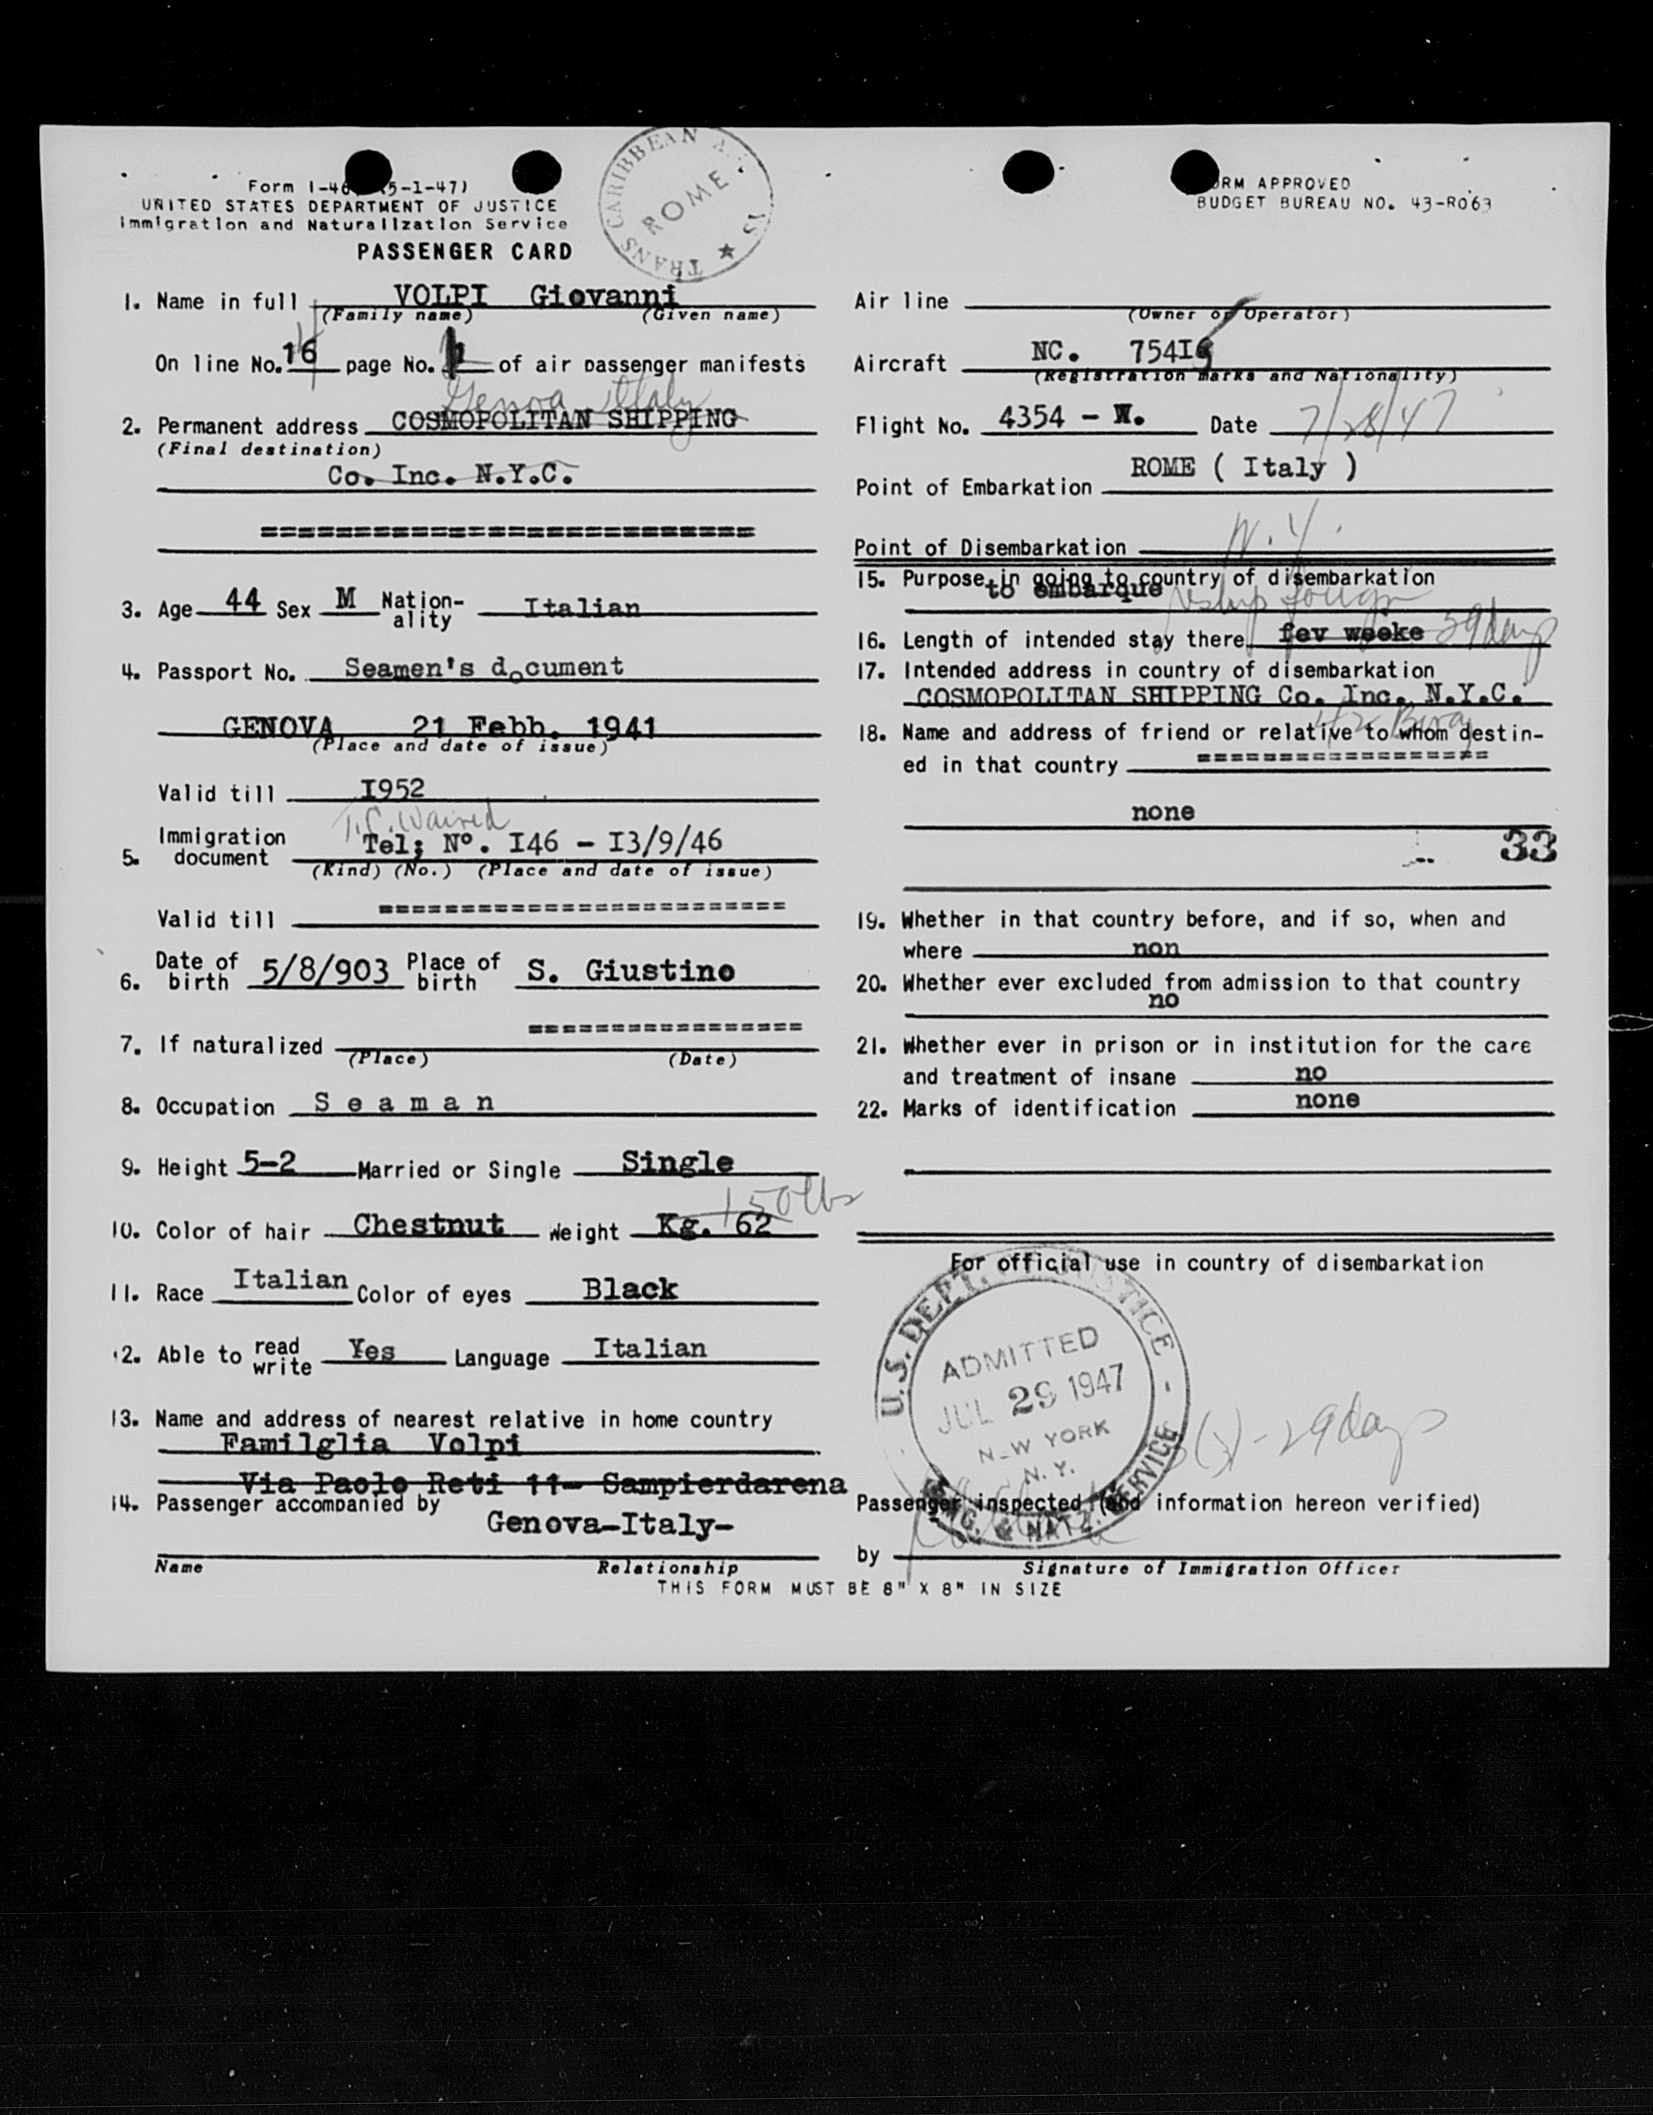 TRANS CARIBBEAN
ROME
Form I-46 (5-1-47)
UNITED STATES DEPARTMENT OF JUSTICE
Immigration and Naturalization Service
PASSENGER CARD
FORM APPROVED
BUDGET BUREAU NO. 43-R063
1. Name in full VOLPI Giovanni
(Family name) (Given name)
On line No. 16 page No. of air passenger manifests
Genoa Italy
2. Permanent address COSMOPOLITAN SHIPPING
(Final destination)
Co. Inc. N.Y.C.
==========================
3. Age 44 Sex M Nation-ality Italian
4. Passport No. Seamen's document
GENOVA 21 Febb. 1941
(Place and date of issue)
Valid till I952
T.C. Waived
5. Immigration document Tel; Nº. I46 - I3/9/46
(Kind) (No.) (Place and date of issue)
Valid till =========================
6. Date of birth 5/8/903 Place of birth S. Giustino
=================
7. If naturalized
(Place) (Date)
8. Occupation S e a m a n
9. Height 5-2 Married or Single Single
150 lbs
10. Color of hair Chestnut Weight Kg. 62
11. Race Italian Color of eyes Black
12. Able to read write Yes Language Italian
13. Name and address of nearest relative in home country
Familglia Volpi
Via Paolo Reti 11- Sampierdarena
14. Passenger accompanied by
Genova-Italy-
Name Relationship
Air line
(Owner or Operator)
Aircraft NC. 754I6
(Registration marks and Nationality)
Flight No. 4354 - W. Date 7/28/47
Point of Embarkation ROME ( Italy )
Point of Disembarkation N.Y.
15. Purpose in going to country of disembarkation
to embarque reship foreign
16. Length of intended stay there fev weeke 29 days
17. Intended address in country of disembarkation
COSMOPOLITAN SHIPPING Co. Inc. N.Y.C.
42 Bway
18. Name and address of friend or relative to whom destin-
ed in that country ==================
none
33
19. Whether in that country before, and if so, when and
where non
20. Whether ever excluded from admission to that country
no
21. Whether ever in prison or in institution for the care
and treatment of insane no
22. Marks of identification none
For official use in country of disembarkation
U.S. DEPT. OF JUSTICE
ADMITTED
JUL 29 1947
NEW YORK
N.Y.
IMMIG. & NATZ. SERVICE
- 29 days
Passenger inspected (and information hereon verified)
by
Signature of Immigration Officer
THIS FORM MUST BE 8" X 8" IN SIZE